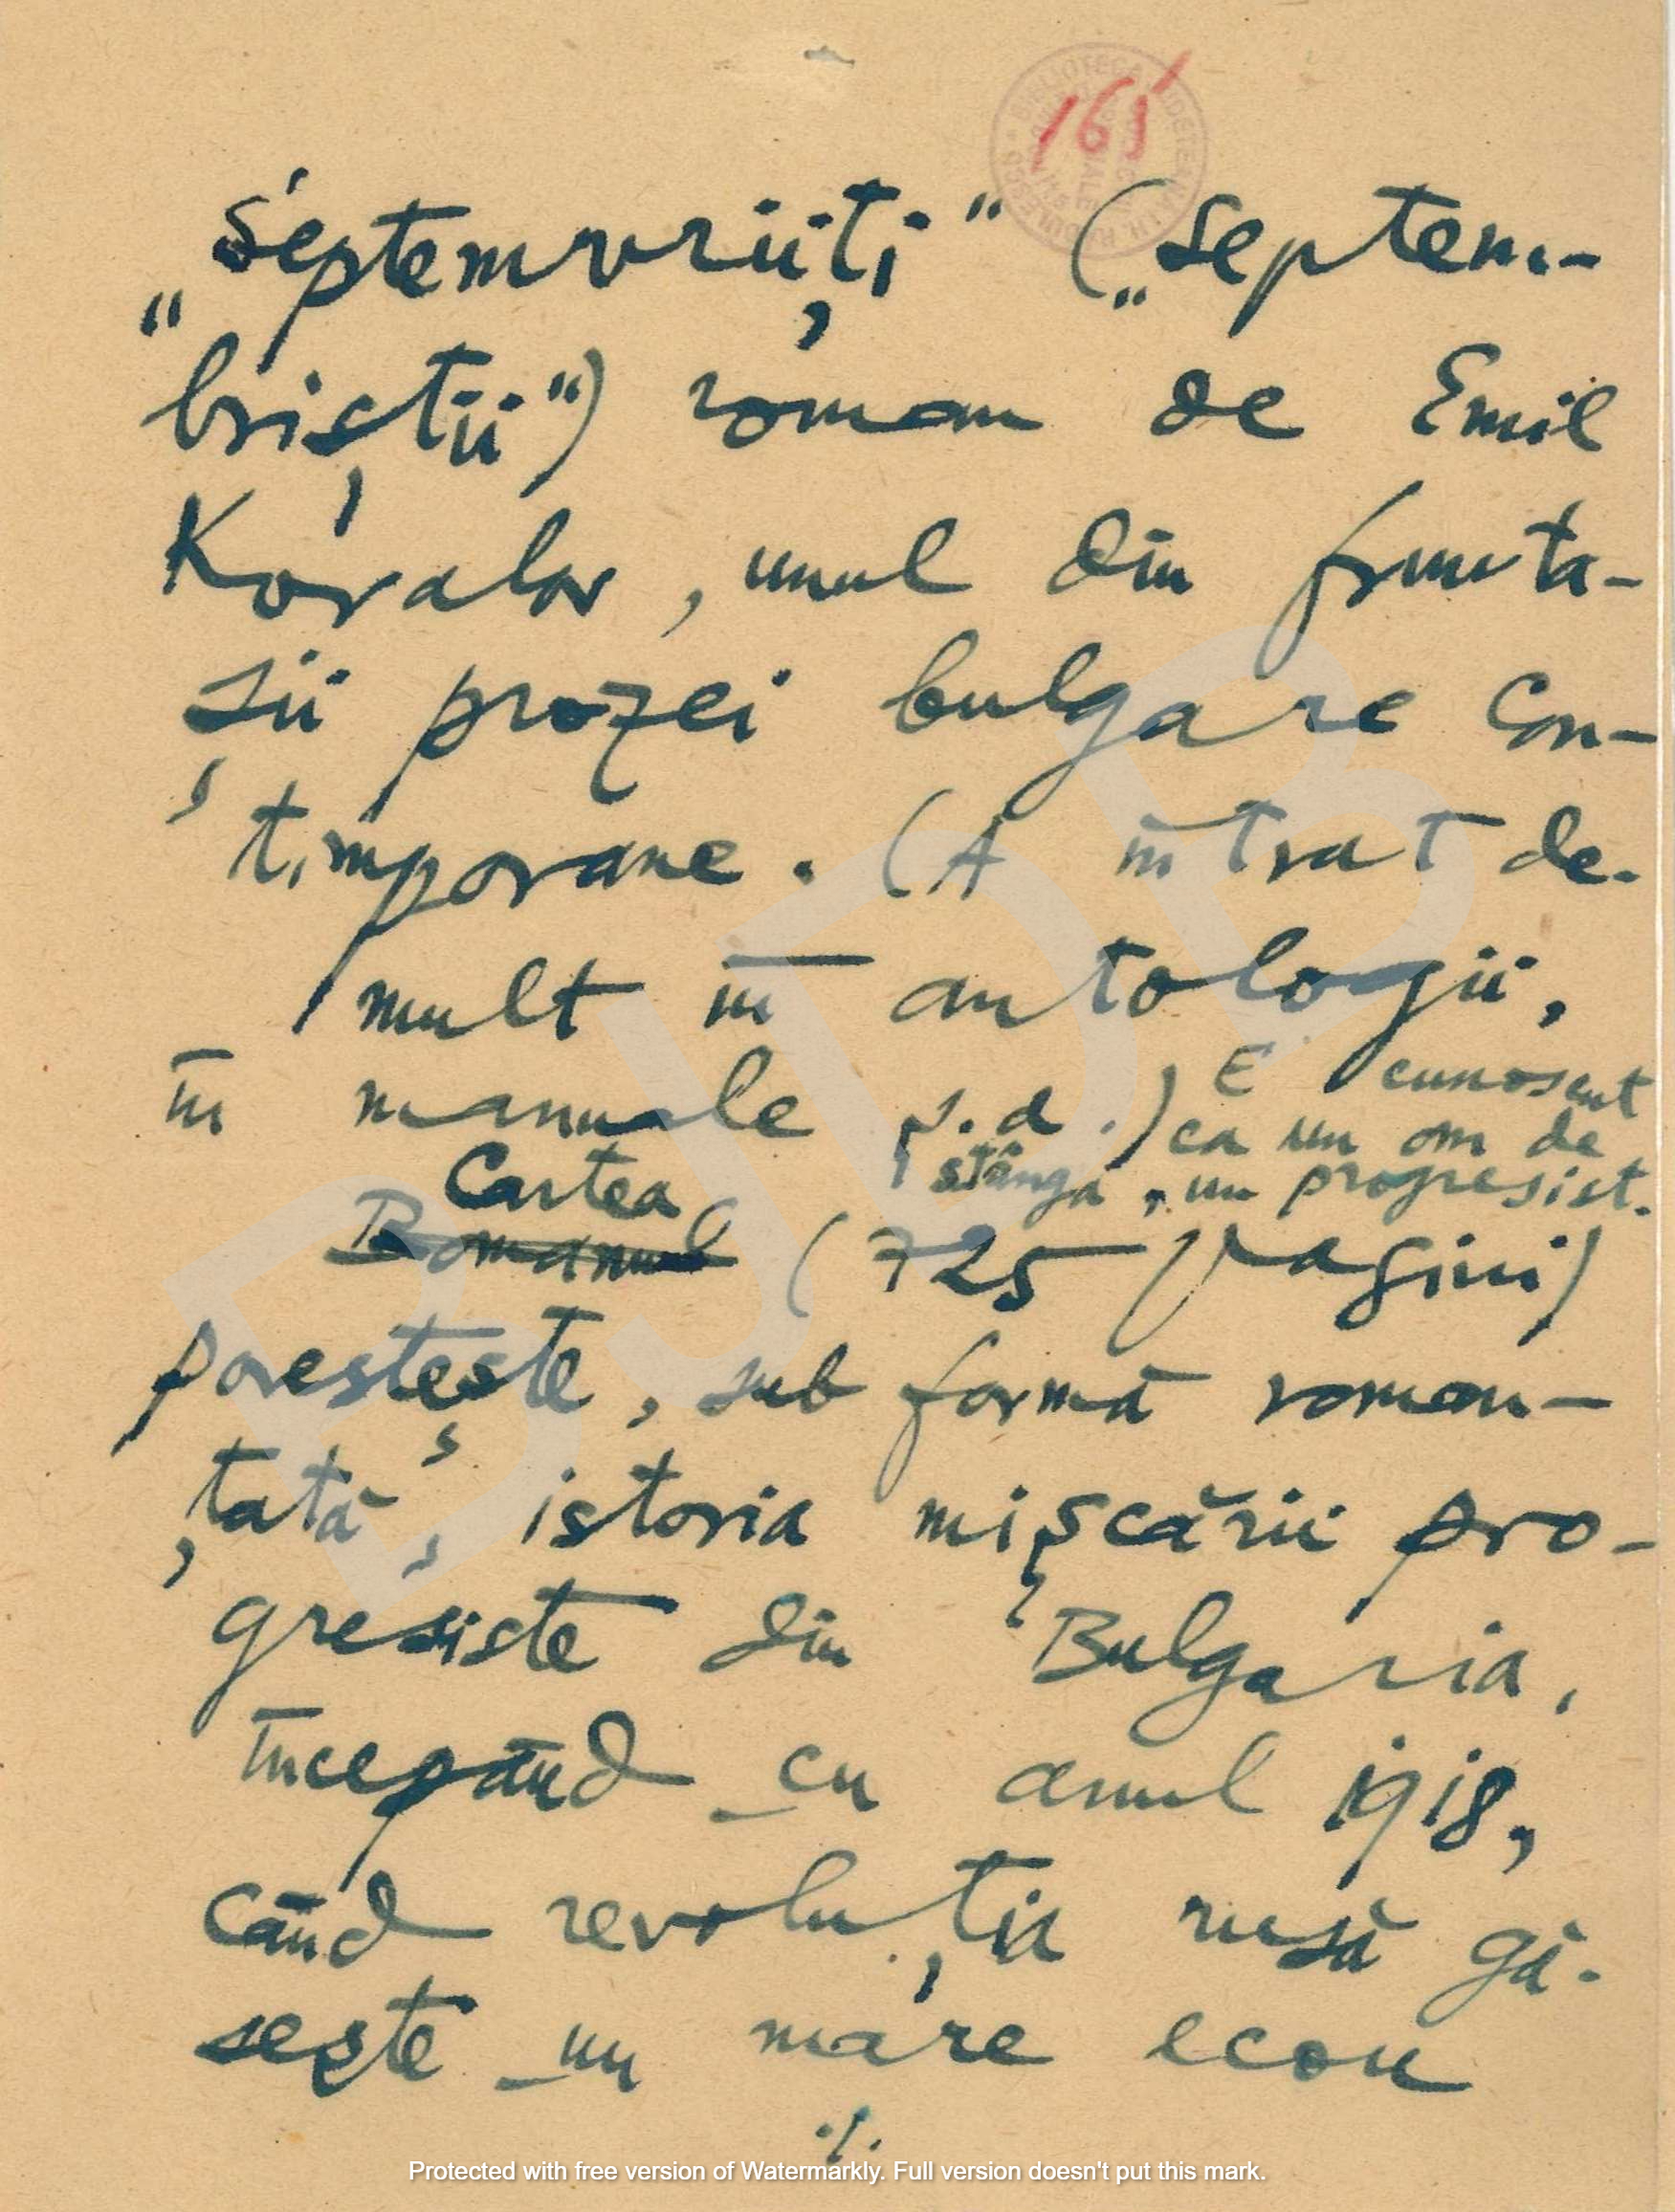 165
„Septemvriiți" („Septem-
briștii") roman de Emil
Koralov, unul din frunta-
șii prozei bulgare con-
timporane. (A intrat de-
mult în antologii,
în manuale ș.a.) E cunoscut
ca un om de
stânga, un progresist.
Cartea
Romanul (725 pagini)
povestește, sub formă roman-
țată, istoria mișcării pro-
gresiste din Bulgaria,
începând cu anul 1918,
când revoluția rusă gă-
sește un mare ecou
./.
BJDB
Protected with free version of Watermarkly. Full version doesn't put this mark.